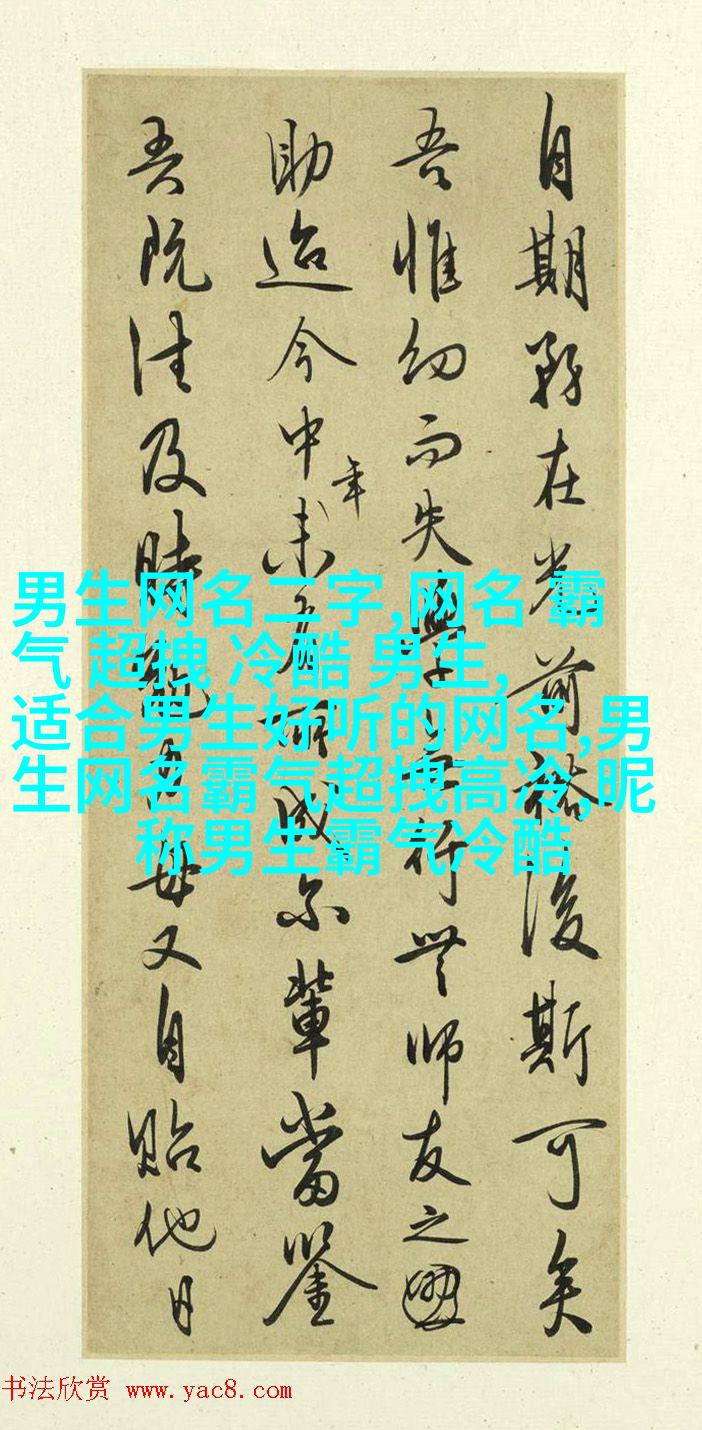 自期務在光前裕後斯可矣
吾惟幼而失學無行無師友之
助迨今中年未有所成尔輩當鑒
吾既往及時勉力毋又自貽他日
男生网名二字,网名 霸
气 超拽 冷酷 男生,
适合男生好听的网名,男
生网名霸气超拽高冷,昵
称男生霸气冷酷
书法欣赏 www.yac8.com